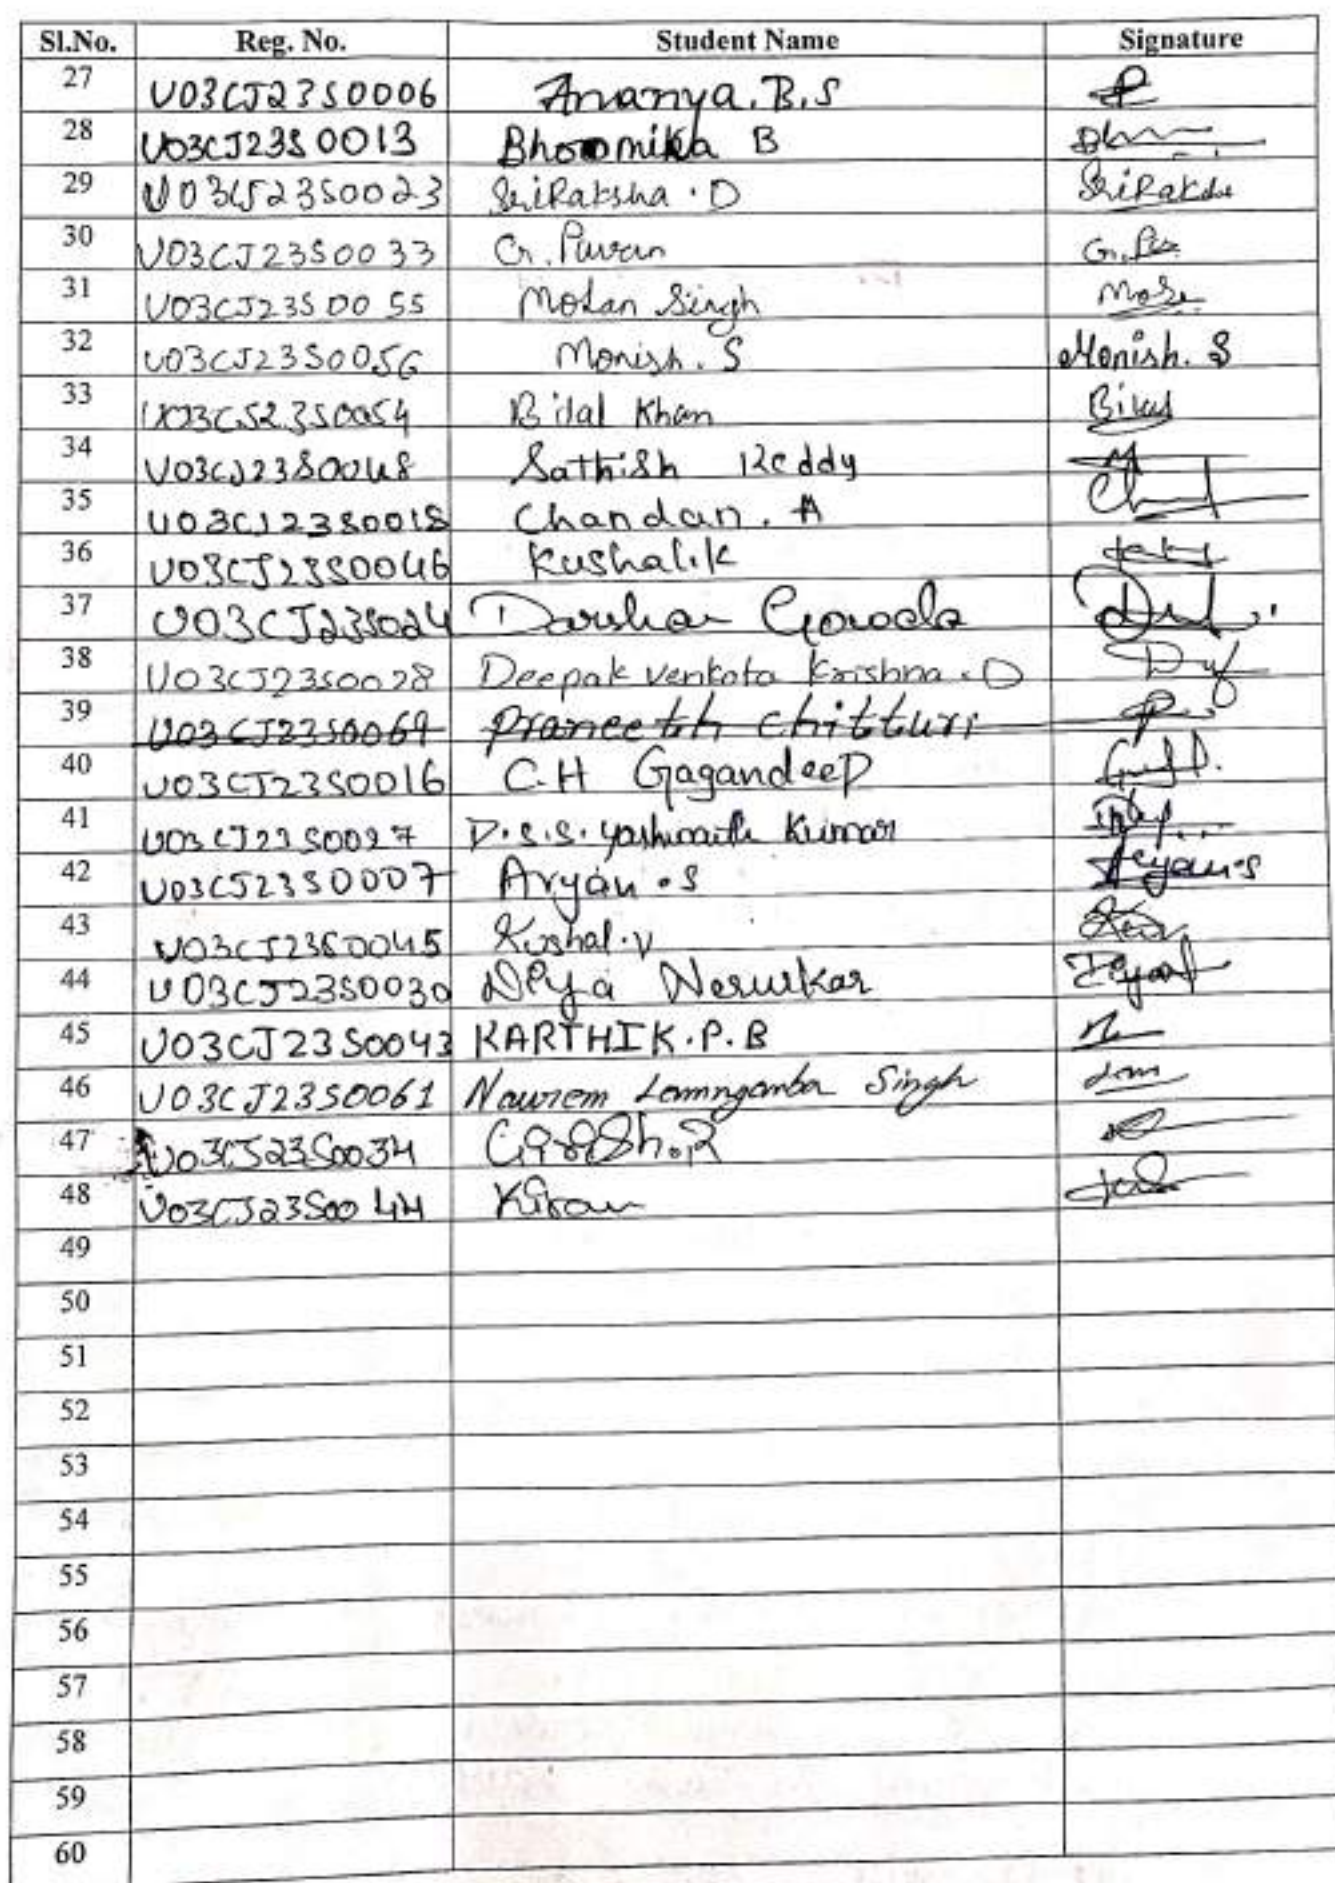 Sl.No. Reg. No. Student Name Signature
27 U03CJ23S0006 Ananya.B.S
28 U03CJ23S0013 Bhoomika B
29 U03CJ23S0023 SriRaksha.D SriRaksha
30 U03CJ23S0033 G.Pavan
31 U03CJ23S0055 Mohan Singh
32 U03CJ23S0056 Monish.S Monish.S
33 U03CJ23S0054 Bilal Khan
34 U03CJ23S0048 Sathish Reddy
35 U03CJ23S0018 Chandan.A
36 U03CJ23S0046 Kushalik
37 U03CJ23S024 Darshan Gowda
38 U03CJ23S0028 Deepak Venkata Krishna.D
39 U03CJ23S0069 Praneeth Chitturi
40 U03CJ23S0016 C.H Gagandeep
41 U03CJ23S0027 D.S.S. Yashwanth Kumar
42 U03CJ23S0007 Aryan.S Aryan.S
43 U03CJ23S0045 Kushal.V
44 U03CJ23S0030 Diya Nerurkar
45 U03CJ23S0043 KARTHIK.P.B
46 U03CJ23S0061 Naurem Lamnganba Singh
47 U03CJ23S0034 Girish.R
48 U03CJ23S0044 Kiran
49
50
51
52
53
54
55
56
57
58
59
60